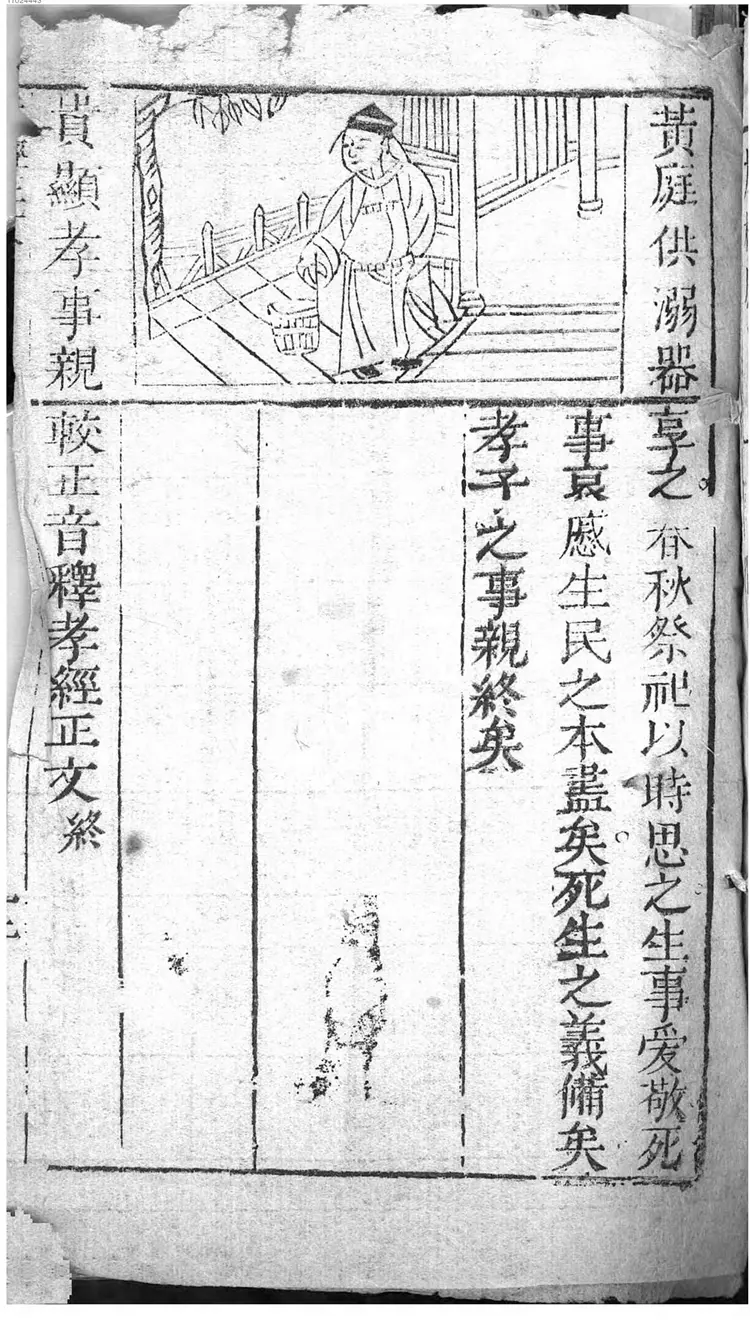 黃庭供溺器
貴顯孝事親
享之春秋祭祀以時思之生事愛敬死
事哀慼生民之本盡矣死生之義備矣
孝子之事親終矣
較正音釋孝經正文終